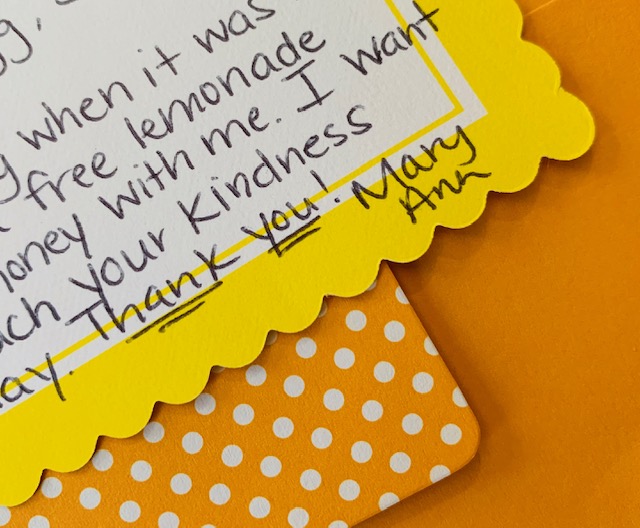 when it was
free lemonade
oney with me. I want
ach your kindness
ay. Thank you! Mary
Ann